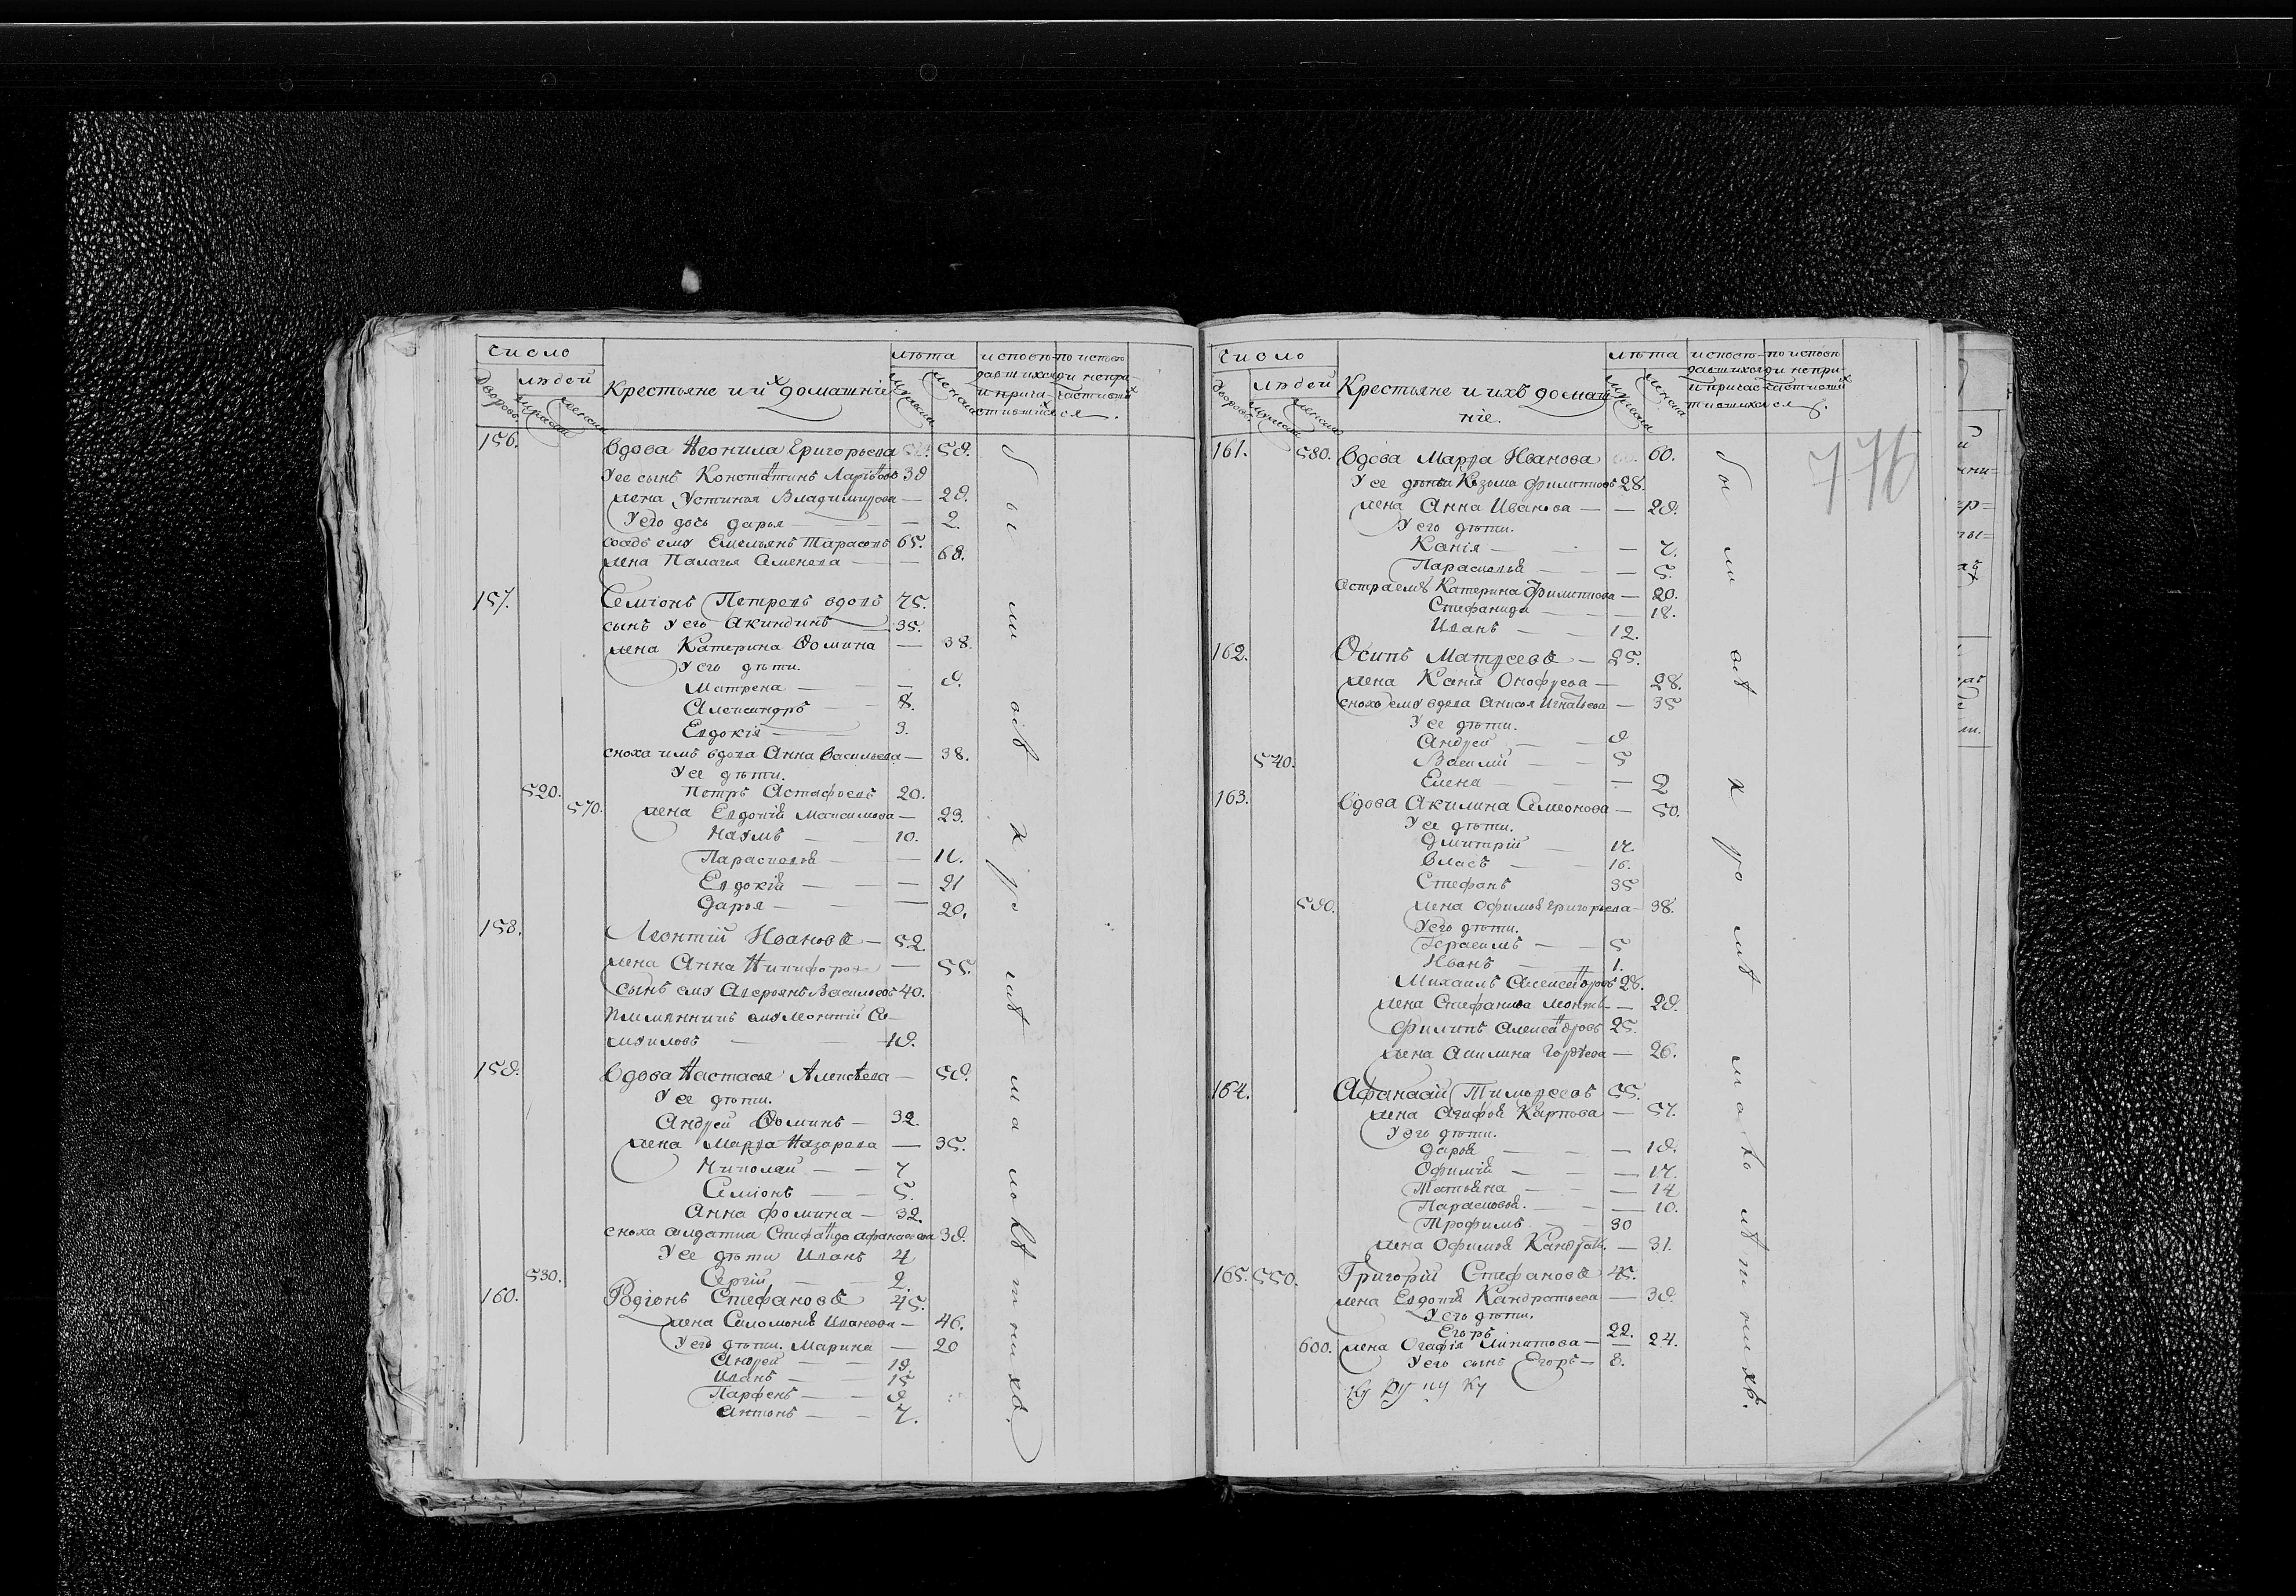 число
людей
Дворовъ
мужеска
женска
Крестьяне и ихъ домашніе
лѣта
мужеска
женска
исповѣ-
давшихся
и прича-
стившихся
по исповѣ
ди непри-
частивших
ся.
156.
вдова Неонила Григорьева 59.
У ее сынъ Константинъ 39
жена Устинья Владимирова — 29.
У его дочь Дарья — 2.
Емельянъ Тарасовъ 65.
жена Палагея Семенова — 68.
157.
Семіонъ Петровъ вдовъ 75.
сынъ у его Акиндинъ 35.
жена Катерина Ѳомина — 38.
У его дѣти.
Матрена — 9.
Александръ 8.
Евдокія — 3.
сноха имъ вдова Анна Васильева — 38.
У ее дѣти.
520.
Петръ Астафьевъ 20.
570.
жена Евдокія Максимова — 23.
Наумъ — 10.
Парасковья —
Евдокія — 21
Дарья — 20.
158.
Леонтій Ивановъ — 52.
жена Анна Никифорова — 55.
сынъ ему Аверьянъ Васильевъ 40.
племянникъ ему Леонтій Са-
муиловъ — 19.
159.
вдова Настасья Алексѣева — 59.
У ее дѣти.
Андрей Ѳоминъ — 32.
жена Марѳа Назарова — 35.
Николай — 7
Семіонъ — 5.
Анна Фомина — 32.
сноха салдатка Стефанида Афанасьева 39.
У ее дѣти Иванъ 4
530.
Сергій — 2.
160.
Родіонъ Стефановъ 45.
жена Соломонія Иванова — 46.
У его дѣти. Марина — 20
Андрей — 19.
Иванъ — 15
Парфенъ — 9.
Антонъ — 7.
были всѣ
число
людей
Дворовъ
мужеска
женска
Крестьяне и ихъ домаш
ніе.
лѣта
мужеска
женска
исповѣ-
давшихся
и причас-
тившихся
по исповѣ
ди непри-
частивших
ся.
776
161.
580.
вдова Марѳа Иванова 60.
У ее дѣти Козьма Филиповъ 28.
жена Анна Иванова — 29.
У его дѣти.
Кснія — 7.
Парасковья — 5.
сестра ему Катерина Филиппова — 20.
Стефанида — 18.
Иванъ — 12.
162.
Осипъ Матѳеевъ — 25.
жена Ксенія Онофрева — 28.
сноха ему вдова Анисья Игнатьева — 35
У ее дѣти.
Андрей — 9
540.
Василій — 5
Елена — 2
163.
вдова Акилина Симеонова — 50.
У ее дѣти.
Дмитрій — 17.
Власъ — 16.
Стефанъ 35
590.
жена Офимья Григорьева — 38.
У его дѣти.
Герасимъ — 5
Иванъ — 1.
Михаилъ Александровъ 28.
жена Стефанида — 29.
Филипъ Александровъ 25.
жена Акилина Гордѣева — 26.
164.
Афанасій Тимоѳеевъ 55.
жена Агафья Карпова — 57.
У его дѣти.
Дарья — 19.
Офимія — 17.
Татьяна — 14
Парасковья. — 10.
Трофимъ — 30
жена Офимья — 31.
165.
550.
Григорій Стефановъ 45.
жена Евдокія Кандратьева — 39.
У его дѣти.
Егоръ 22.
600.
жена Огафія — 24.
У его сынъ Егоръ — 8.
были всѣ кромѣ малолѣтнихъ.